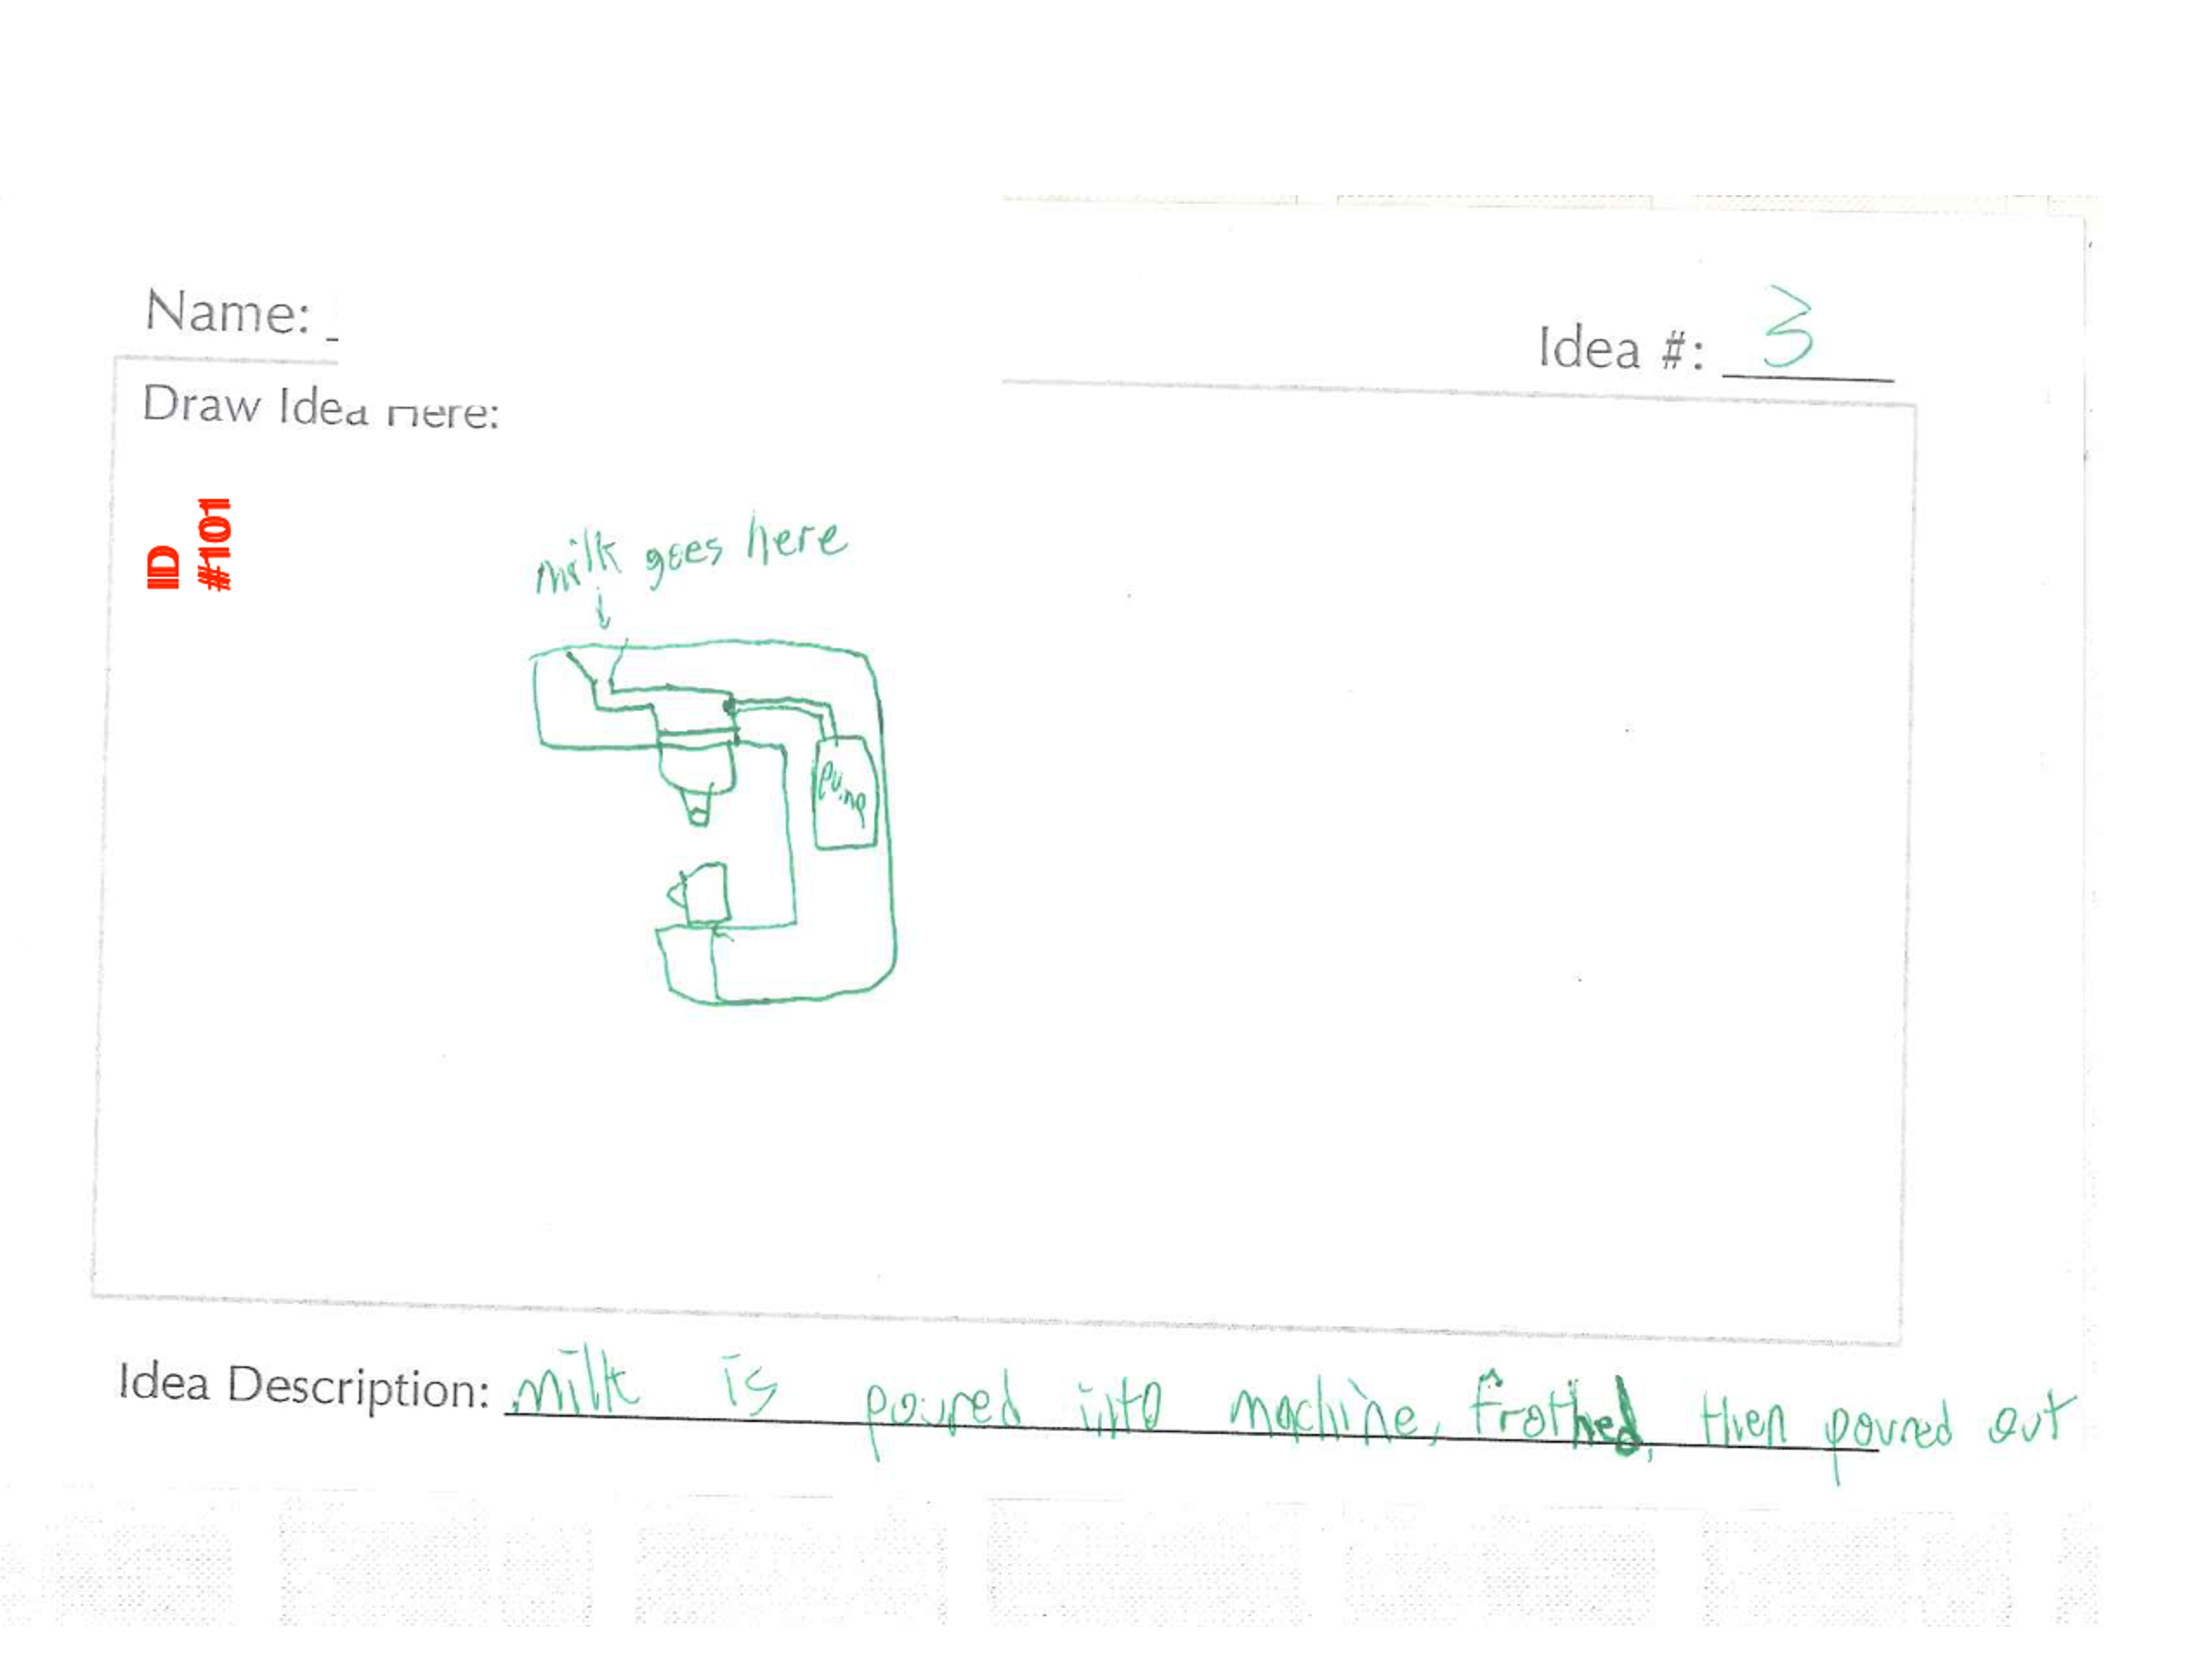 Name:
Idea #: 3
Draw Idea Here:
ID
#101
milk goes here
Pump
Idea Description: milk is poured into machine, frothed, then poured out